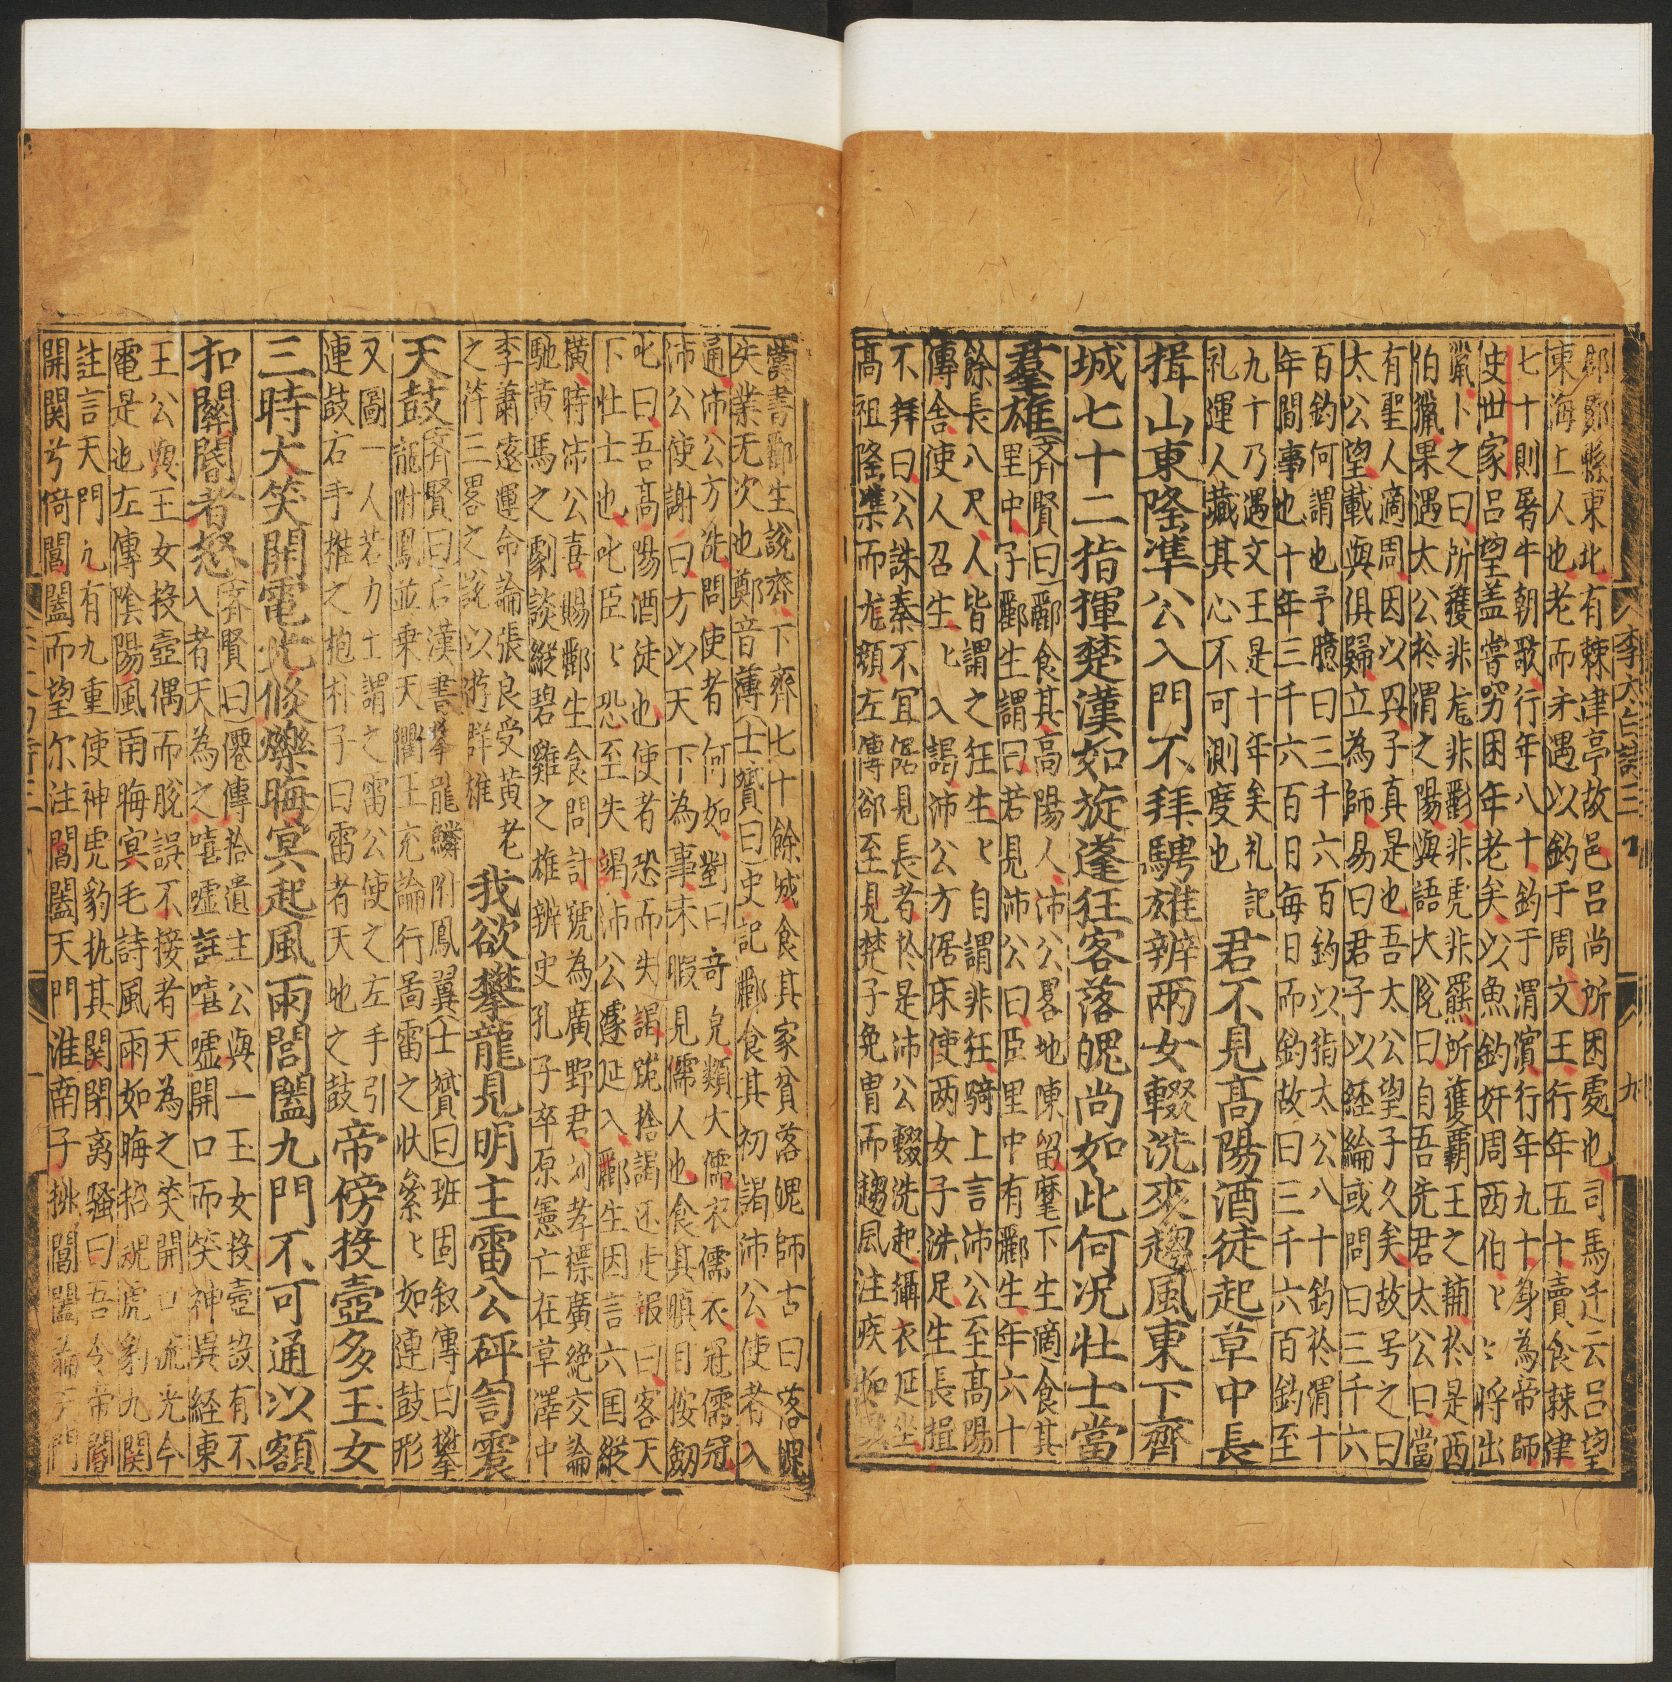 李太白詩三
九
郡鄭縣東北有棘津亭故邑呂尚所困處也司馬迁云呂望
東海上人也老而未遇以釣于周文王行年五十賣食棘津
七十則屠牛朝歌行年八十釣于渭濵行年九十身為帝師
史世家呂望盖嘗窮困年老矣以魚釣奸周西伯〻〻将出
獵卜之曰所獲非尨非彲非虎非羆所獲覇王之輔於是西
伯獵果遇太公於渭之陽與語大悅曰自吾先君太公曰當
有聖人適周因以㒷子真是也吾太公望子久矣故号之曰
太公望載與俱歸立為師易曰君子以經綸或問曰三千六
百釣何謂也予臆曰三千六百釣以指太公八十釣於渭十
年間事也十年三千六百日每日而釣故曰三千六百釣至
九十乃遇文王是十年矣礼記
礼運人藏其心不可測度也
君不見高陽酒徒起草中長
揖山東隆準公入門不拜騁雄辨兩女輟洗來趨風東下齊
城七十二指揮楚漢如旋蓬狂客落魄尚如此何况壮士當
羣雄
齊賢曰酈食其高陽人沛公畧地陳留麾下生適食其
里中子酈生謂曰若見沛公曰臣里中有酈生年六十
餘長八尺人皆謂之狂生〻自謂非狂騎上言沛公至高陽
傳舎使人召生〻入謁沛公方倨床使两女子洗足生長揖
不拜曰公誅秦不宜倨見長者於是沛公輟洗起攝衣延坐
高祖隆準而尨顔左傳郤至見楚子免胄而趨風注疾如風
漢書酈生說齊下齊七十餘城食其家貧落魄師古曰落魄
失業无次也鄭音薄士贇曰史記酈食其初謁沛公使者入
通沛公方洗問使者何如對曰竒皃類大儒衣儒衣冠儒冠
沛公使謝曰方以天下為事未暇見儒人也食其瞋目按劔
叱曰吾高陽酒徒也使者恐而失謁跪捨謁还走報曰客天
下壮士也叱臣〻恐至失謁沛公遽延入酈生因言六国縦
横時沛公喜賜酈生食問計號為廣野君刘孝標廣絶交論
馳黄馬之劇談縦碧雞之雄辨史孔子卒原憲亡在草澤中
李蕭遠運命論張良受黄老
之符三畧之說以游群雄
我欲攀龍見明主雷公砰訇震
天鼓
齊賢曰后漢書攀龍鱗附鳳翼士贇曰班固叙傳曰攀
龍附鳳並乗天衢王充論行畵雷之狀纍〻如連鼓形
又圖一人若力士謂之雷公使之左手引
連鼓右手推之抱朴子曰雷者天地之鼓
帝傍投壼多玉女
三時大笑開電光倐爍晦冥起風雨閶闔九門不可通以額
扣關閽者怒
齊賢曰僊傳拾遺主公與一玉女投壼設有不
入者天為之嘻嘘註嘻嘘開口而笑神異経東
王公與玉女投壼偶而脫誤不接者天為之笑開口流光今
電是也左傳陰陽風雨晦冥毛詩風雨如晦招魂虎豹九関
註言天門凢有九重使神虎豹执其関閉离騷曰吾令帝閽
開関兮倚閶闔而望尔注閶闔天門淮南子排閶闔淪天門